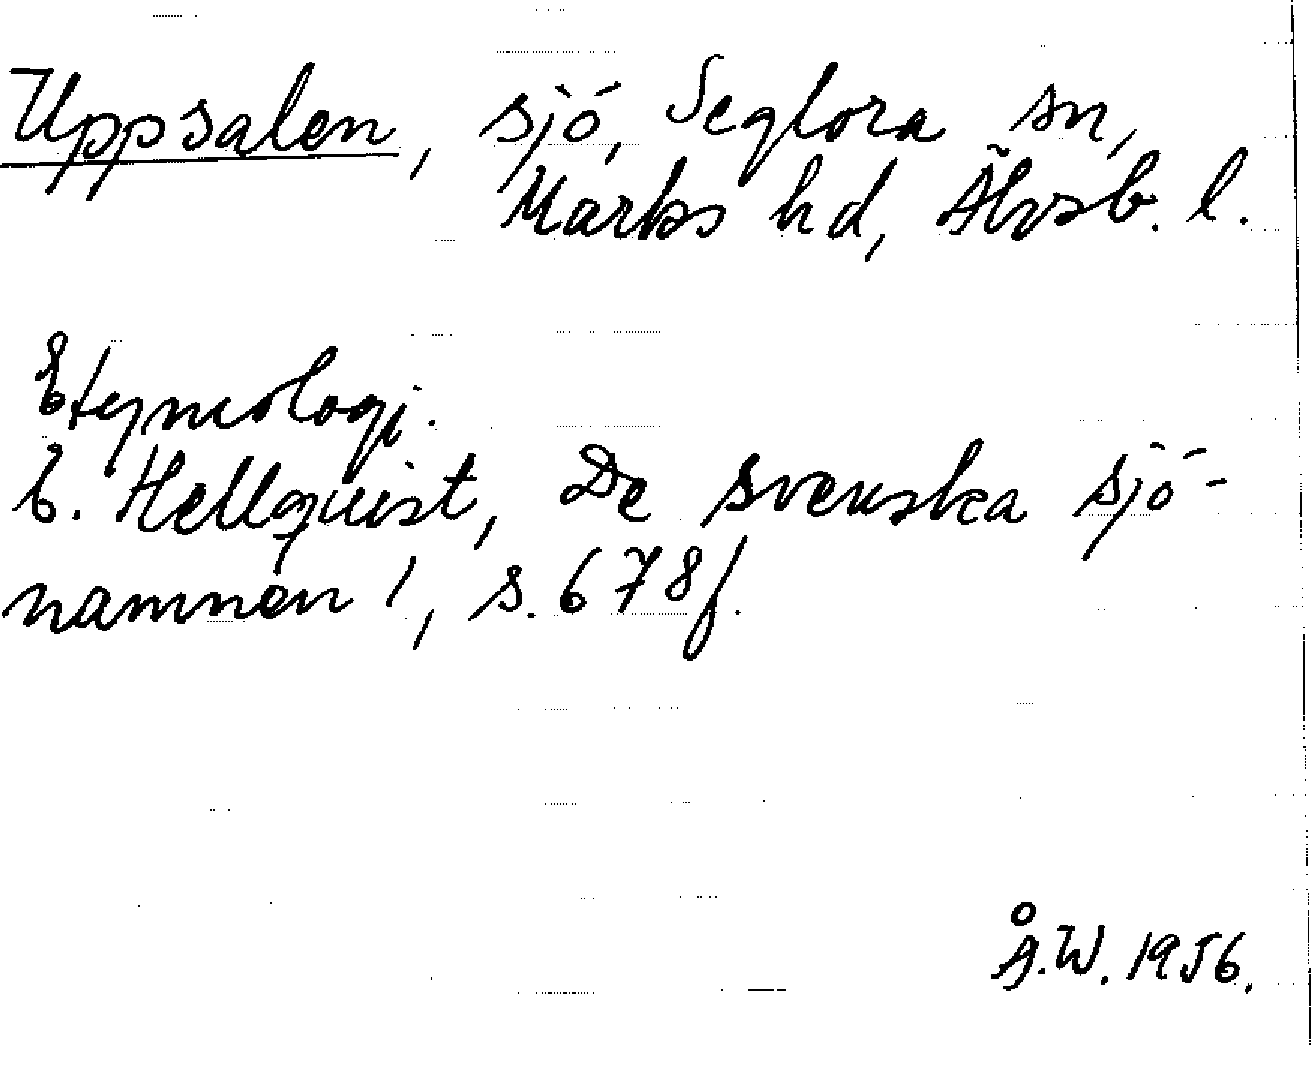 Uppsalen, sjö, Seglora sn,
Marks hd, Älvsb. l.
Etymologi.
E. Hellquist, De svenska sjö-
namnen 1, s. 678f.
Å.W. 1956.